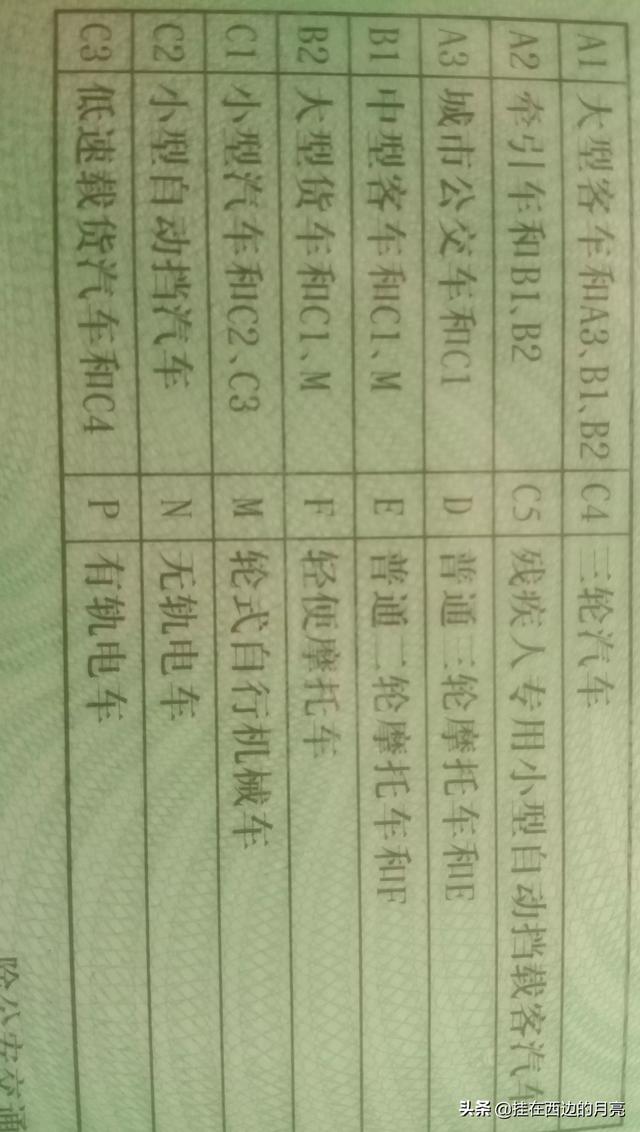 A1 大型客车和A3、B1、B2 C4 三轮汽车
A2 牵引车和B1、B2 C5 残疾人专用小型自动挡载客汽车
A3 城市公交车和C1 D 普通三轮摩托车和E
B1 中型客车和C1、M E 普通二轮摩托车和F
B2 大型货车和C1、M F 轻便摩托车
C1 小型汽车和C2、C3 M 轮式自行机械车
C2 小型自动挡汽车 N 无轨电车
C3 低速载货汽车和C4 P 有轨电车
除公安交通
头条 @挂在西边的月亮